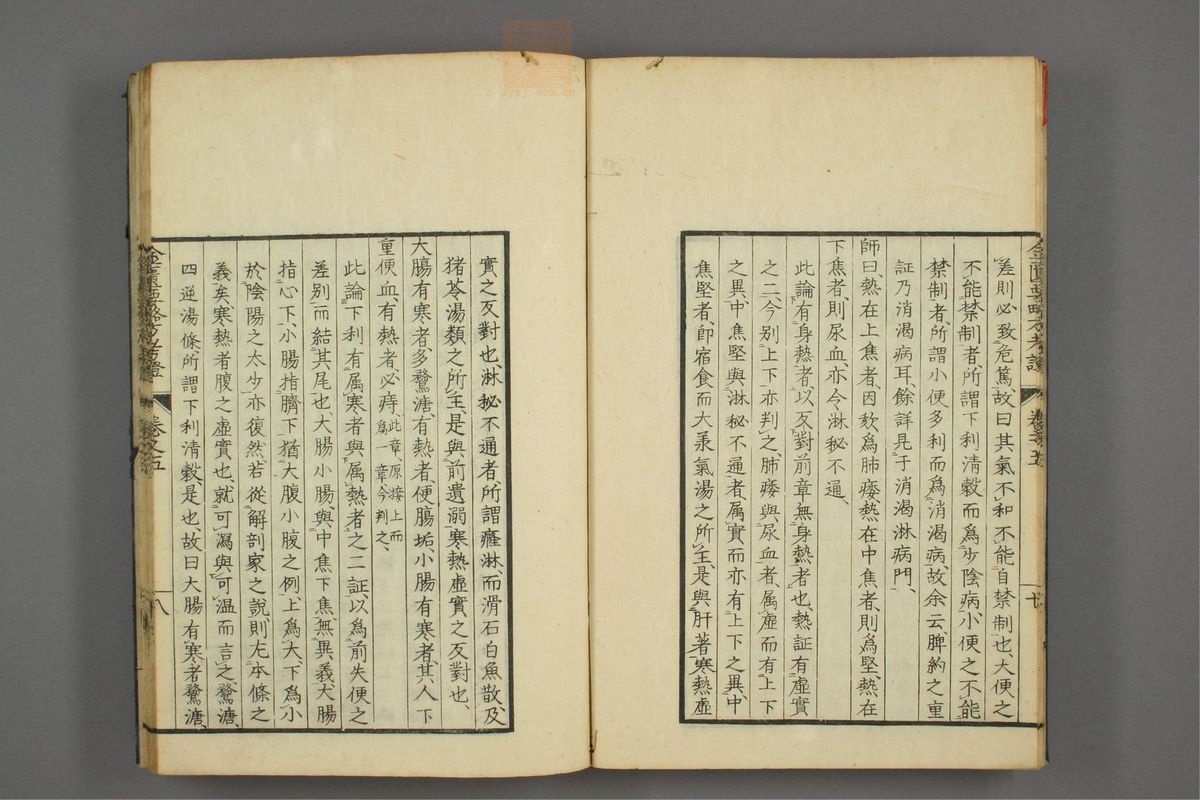 差則必致危篤故曰其氣不和不能自禁制也、大便之
不能禁制者、所謂下利清穀而爲少陰病、小便之不能
禁制者所謂小便多利而爲消渴病、故余云、脾約之重
証乃消渴病耳、餘詳見于消渴淋病門、
師曰熱在上焦者、因欬爲肺痿、熱在中焦者、則爲堅、熱在
下焦者、則尿血、亦令淋秘不通、
此論有身熱者、以反對前章無身熱者也、熱証有虛實
之二、今別上下、亦判之、肺痿與尿血者、属虛而有上下
之異、中焦堅與淋秘不通者、属實而亦有上下之異、中
焦堅者、卽宿食而大承氣湯之所主、是與肝著寒熱虛
實之反對也、淋秘不通者所謂癃淋、而滑石白魚散、及
猪苓湯類之所主、是與前遺溺寒熱虛實之反對也、
大腸有寒者、多鶩溏、有熱者、便腸垢、小腸有寒者、其人下
重便血、有熱者、必痔、此章、原接上而爲一章、今判之、
此論下利有属寒者與属熱者之二証、以爲前失便之
差別、而結其尾也、大腸小腸、與中焦下焦、無異義、大腸
指心下、小腸指臍下、猶大腹小腹之例、上爲大、下爲小
於陰陽之太少亦復然、若從解剖家之說、則左本條之
義矣、寒熱者腹之虛實也、就可瀉與可温而言之、鶩溏、
四逆湯條所謂下利清穀、是也、故曰大腸有寒者鶩溏、
金匱要略方考證
卷之五
八